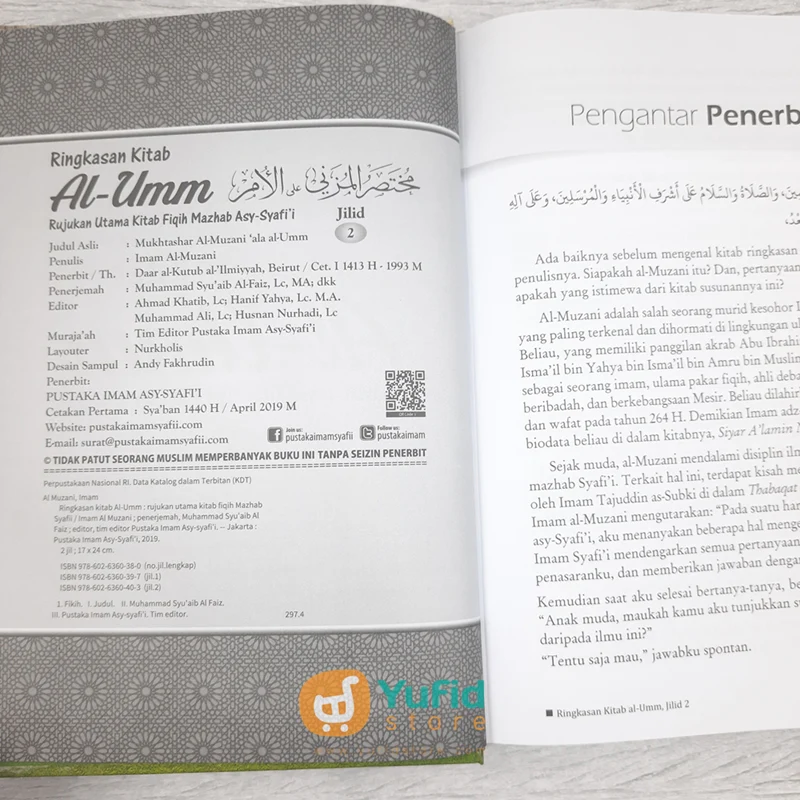 Ringkasan Kitab
Al-Umm مختصر المزني على الأم
Rujukan Utama Kitab Fiqih Mazhab Asy-Syafi'i
Jilid
2
Judul Asli : Mukhtashar Al-Muzani 'ala al-Umm
Penulis : Imam Al-Muzani
Penerbit / Th. : Daar al-Kutub al-'Ilmiyyah, Beirut / Cet. I 1413 H - 1993 M
Penerjemah : Muhammad Syu'aib Al-Faiz, Lc, MA; dkk
Editor : Ahmad Khatib, Lc; Hanif Yahya, Lc. M.A.
Muhammad Ali, Lc; Husnan Nurhadi, Lc
Muraja'ah : Tim Editor Pustaka Imam Asy-Syafi'i
Layouter : Nurkholis
Desain Sampul : Andy Fakhrudin
Penerbit:
PUSTAKA IMAM ASY-SYAFI'I
Cetakan Pertama : Sya'ban 1440 H / April 2019 M
Website: pustakaimamsyafii.com
E-mail: surat@pustakaimamsyafii.com
Join us:
pustakaimamsyafii
Follow us:
pustakaimam
© TIDAK PATUT SEORANG MUSLIM MEMPERBANYAK BUKU INI TANPA SEIZIN PENERBIT
Perpustakaan Nasional RI. Data Katalog dalam Terbitan (KDT)
Al Muzani, Imam
Ringkasan kitab Al-Umm : rujukan utama kitab fiqih Mazhab
Syafii / Imam Al Muzani ; penerjemah, Muhammad Syu'aib Al
Faiz ; editor, tim editor Pustaka Imam Asy-syafi'i. -- Jakarta :
Pustaka Imam Asy-Syafi'i, 2019.
2 jil ; 17 x 24 cm.
ISBN 978-602-6360-38-0 (no.jil.lengkap)
ISBN 978-602-6360-39-7 (jil.1)
ISBN 978-602-6360-40-3 (jil.2)
1. Fikih. I. Judul. II. Muhammad Syu'aib Al Faiz.
III. Pustaka Imam Asy-syafi'i. Tim editor.
297.4
Pengantar Penerb
وَالصَّلَاةُ وَالسَّلَامُ عَلَى أَشْرَفِ الْأَنْبِيَاءِ وَالْمُرْسَلِينَ، وَعَلَى آلِهِ
Ada baiknya sebelum mengenal kitab ringkasan
penulisnya. Siapakah al-Muzani itu? Dan, pertanyaan
apakah yang istimewa dari kitab susunannya ini?
Al-Muzani adalah salah seorang murid kesohor I
yang paling terkenal dan dihormati di lingkungan ul
Beliau, yang memiliki panggilan akrab Abu Ibrahi
Isma'il bin Yahya bin Isma'il bin Amru bin Muslim
sebagai seorang imam, ulama pakar fiqih, ahli deba
beribadah, dan berkebangsaan Mesir. Beliau dilahir
dan wafat pada tahun 264 H. Demikian Imam adz
biodata beliau di dalam kitabnya, Siyar A'lamin N
Sejak muda, al-Muzani mendalami disiplin ilm
mazhab Syafi'i. Terkait hal ini, terdapat kisah me
oleh Imam Tajuddin as-Subki di dalam Thabaqat
Imam al-Muzani mengutarakan: "Pada suatu har
asy-Syafi'i, aku menanyakan beberapa hal menge
Imam Syafi'i mendengarkan semua pertanyaa
penasaranku, dan memberikan jawaban dengan
Kemudian saat aku selesai bertanya-tanya, be
"Anak muda, maukah kamu aku tunjukkan su
daripada ilmu ini?"
"Tentu saja mau," jawabku spontan.
Ringkasan Kitab al-Umm, Jilid 2
Yufid
store